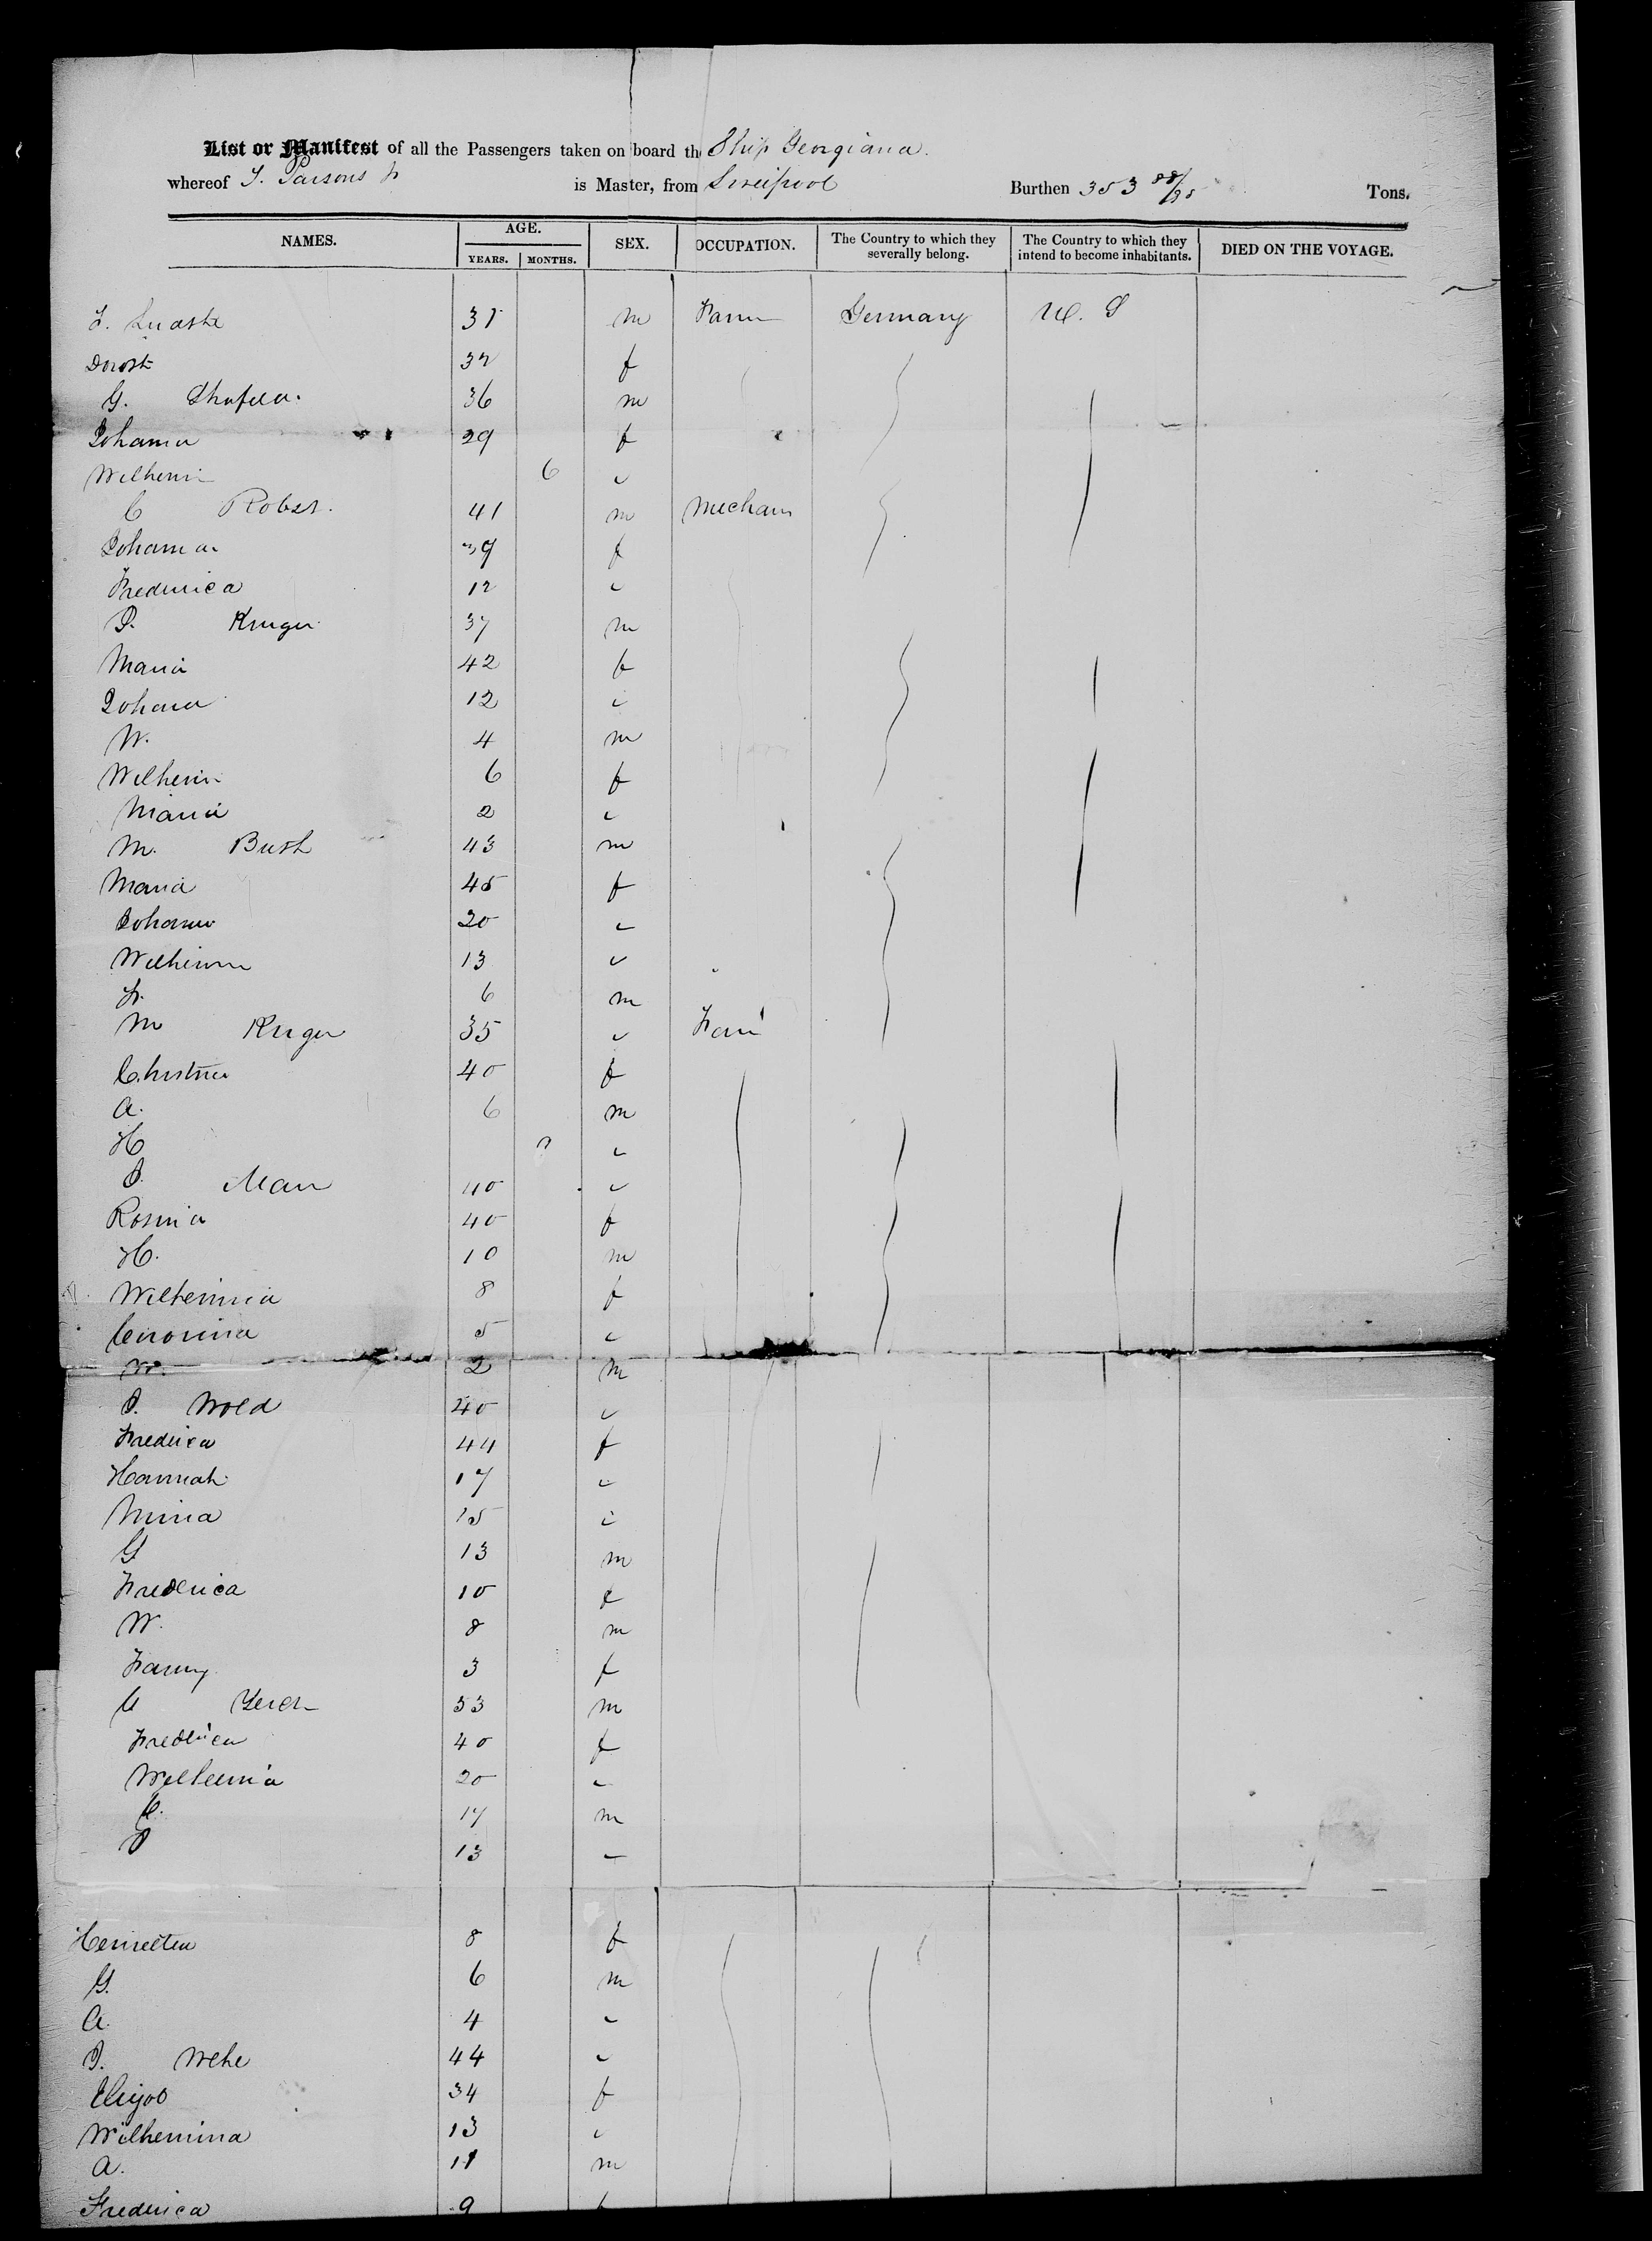 List or Manifest of all the Passengers taken on board the Ship Georgiana.
whereof J. Parsons Jr is Master, from Liverpool Burthen 353 88/95 Tons.
NAMES. AGE. YEARS. MONTHS. SEX. OCCUPATION. The Country to which they severally belong. The Country to which they intend to become inhabitants. DIED ON THE VOYAGE.
31 m Farm Germany U. S
Dorot 32 f
G. 36 m
Johanna 29 f
Wilhemi 6 "
C Rober. 41 m Mechan
Johanna 39 f
Frederica 12 "
J. Kruger 37 m
Maria 42 f
Johana 12 "
W. 4 m
Wilhemi 6 f
Maria 2 "
M. Bush 43 m
Maria 45 f
Johana 20 "
Wilhemin 13 "
Fr. 6 m
M Kruger 35 " Farm
Christine 40 f
A. 6 m
H "
J. Man 40 "
Rosina 40 f
H. 10 m
Wilhemina 8 f
Carorina 5 "
W. 2 m
J. Wold 40 "
Frederica 44 f
Hannah 17 "
Mina 15 "
G 13 m
Frederica 10 f
W. 8 m
Fanny 3 f
C 53 m
Fredrica 40 f
Wilhemina 20 "
C. 17 m
J 13 "
Henrietta 8 f
G. 6 m
A. 4 "
J. Wehe 44 "
34 f
Wilhemina 13 "
A. 11 m
Frederica 9 f